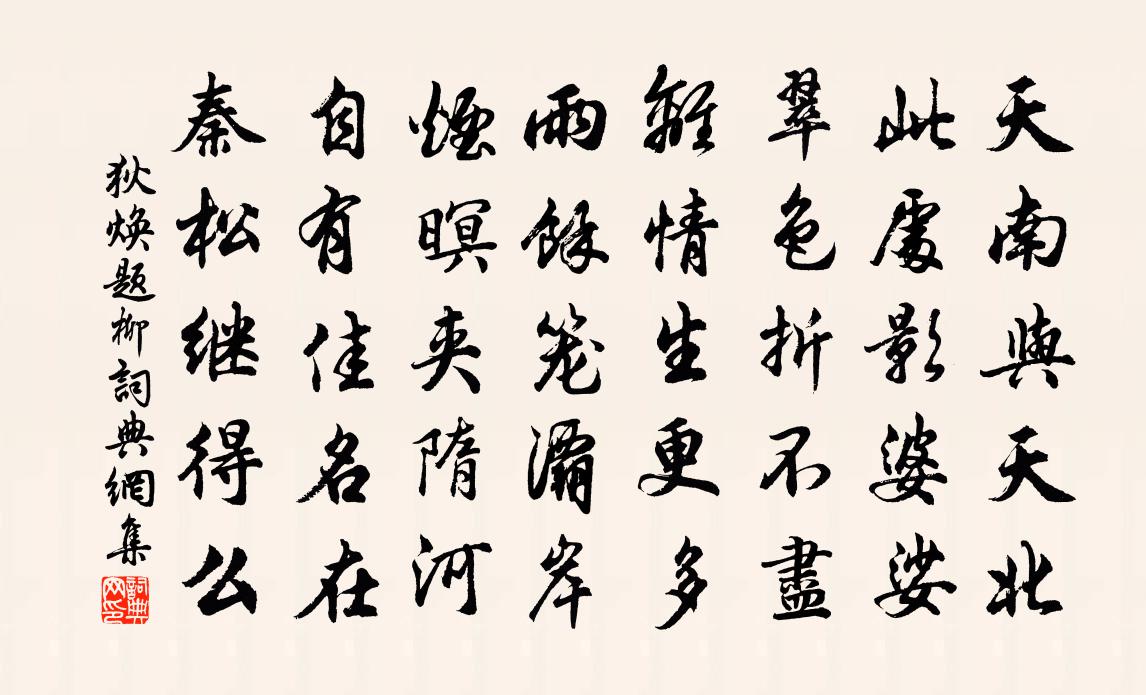 天南與天北
此處影婆娑
翠色折不盡
離情生更多
雨餘笼灞岸
煙暝夹隋河
自有佳名在
秦松继得么
狄焕题柳詞典網集
詞典网印